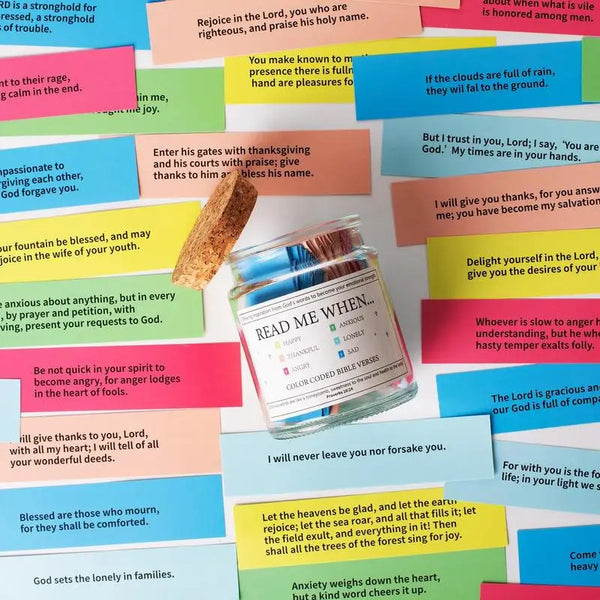 RD is a stronghold for
pressed, a stronghold
s of trouble.
Rejoice in the Lord, you who are
righteous, and praise his holy name.
about when what is vile
is honored among men.
nt to their rage,
g calm in the end.
in me,
me joy.
You make known to m
presence there is fulln
hand are pleasures fo
If the clouds are full of rain,
they wil fal to the ground.
But I trust in you, Lord; I say, ‘You are
God.’ My times are in your hands.
mpassionate to
rgiving each other,
God forgave you.
Enter his gates with thanksgiving
and his courts with praise; give
thanks to him and bless his name.
I will give you thanks, for you answ
me; you have become my salvation
our fountain be blessed, and may
joice in the wife of your youth.
Delight yourself in the Lord,
give you the desires of your
e anxious about anything, but in every
, by prayer and petition, with
ving, present your requests to God.
Whoever is slow to anger h
understanding, but he wh
hasty temper exalts folly.
Be not quick in your spirit to
become angry, for anger lodges
in the heart of fools.
inspiration from God's words to become your emotional strength
READ ME WHEN...
HAPPY
THANKFUL
ANGRY
ANXIOUS
LONELY
SAD
COLOR CODED BIBLE VERSES
words are like a honeycomb, sweetness to the soul and health to the
Proverbs 16:24
The Lord is gracious an
our God is full of compa
will give thanks to you, Lord,
with all my heart; I will tell of all
your wonderful deeds.
I will never leave you nor forsake you.
For with you is the fo
life; in your light we s
Blessed are those who mourn,
for they shall be comforted.
Let the heavens be glad, and let the earth
rejoice; let the sea roar, and all that fills it; let
the field exult, and everything in it! Then
shall all the trees of the forest sing for joy.
Come
heavy
God sets the lonely in families.
Anxiety weighs down the heart,
but a kind word cheers it up.